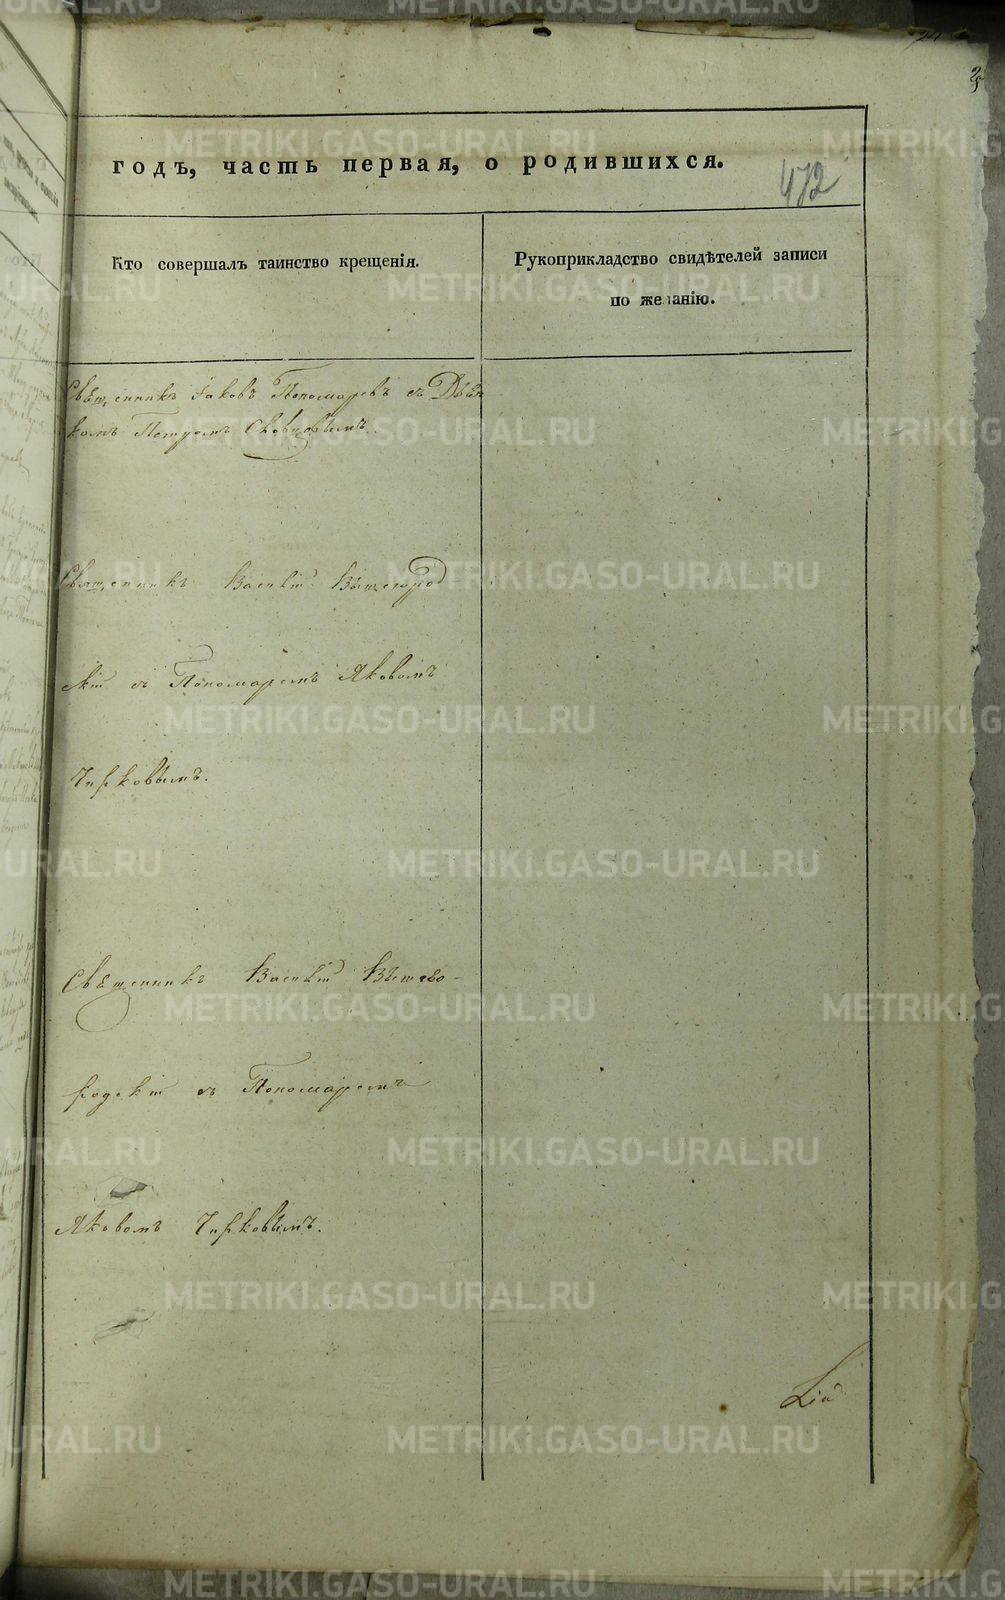 годъ, часть первая, о родившихся.
472
Кто совершалъ таинство крещенія.
Рукоприкладство свидѣтелей записи
по желанію.
Священникъ Іаковъ Пономаревъ съ Дьяч
комъ Петромъ
Священникъ Василій Вышегород
скій съ Пономаремъ Яковомъ
Чирковымъ.
Священникъ Василій Вышего-
родскій съ Пономаремъ
Яковомъ Чирковымъ.
METRIKI.GASO-URAL.RU